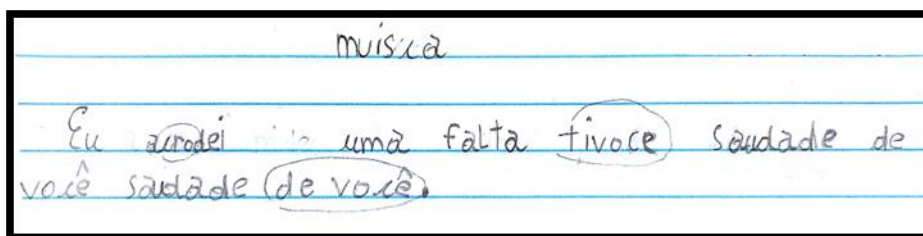 muisca
Eu acrodei uma falta tivoce saudade de
você saudade de você.